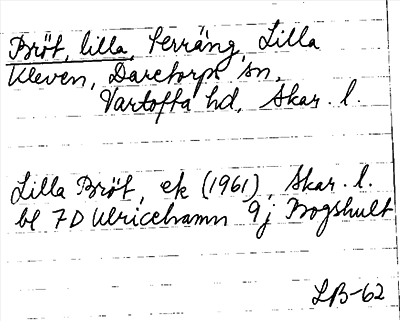 Bröt, lilla, terräng, Lilla
Kleven, Daretorps sn,
Vartofta hd, Skar. l.
Lilla Bröt, ek (1961), Skar. l.
bl 7D Ulricehamn 9j Brogshult
LB-62